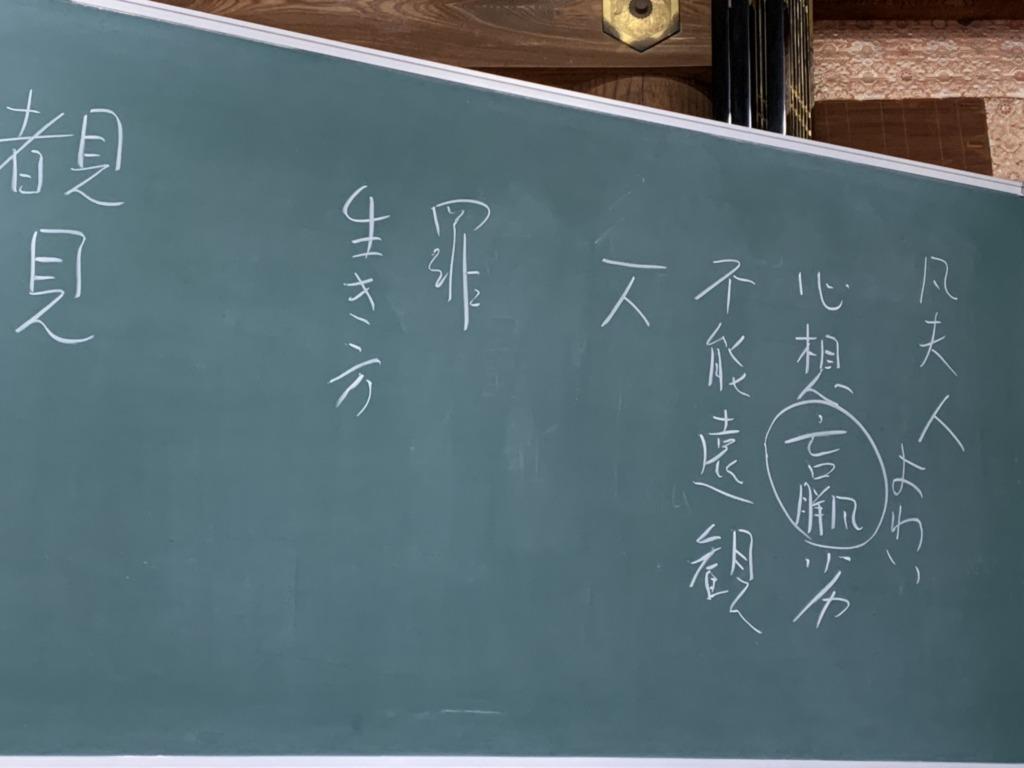 凡夫人
よわい
心想羸劣
不能遠観
一人
罪
生き方
覩見